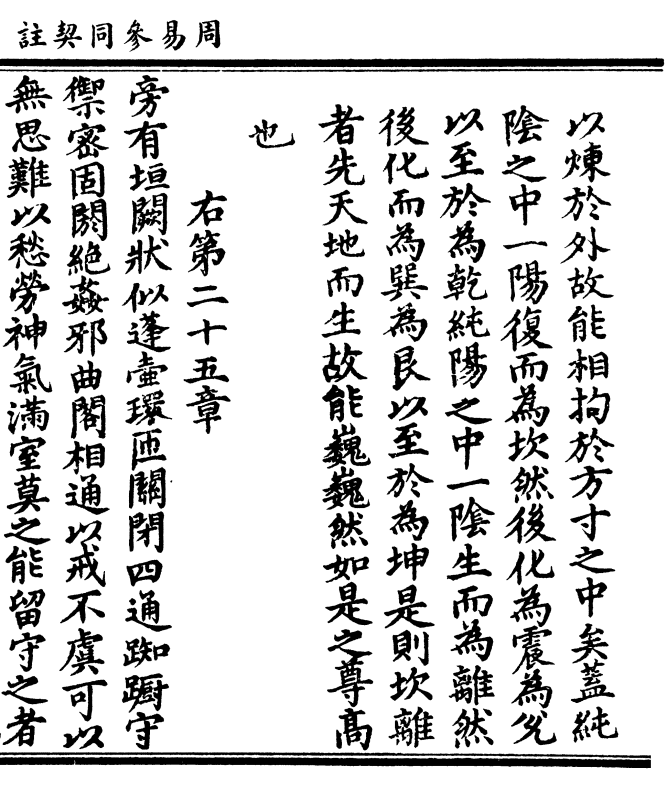 周易參同契註
以煉於外故能相拘於方寸之中矣蓋純
陰之中一陽復而為坎然後化為震為兌
以至於為乾純陽之中一陰生而為離然
後化而為巽為艮以至於為坤是則坎離
者先天地而生故能巍巍然如是之尊高
也
右第二十五章
旁有垣闕狀似蓬壺環匝關閉四通踟躕守
禦密固閼絕姦邪曲閣相通以戒不虞可以
無思難以愁勞神氣滿室莫之能留守之者